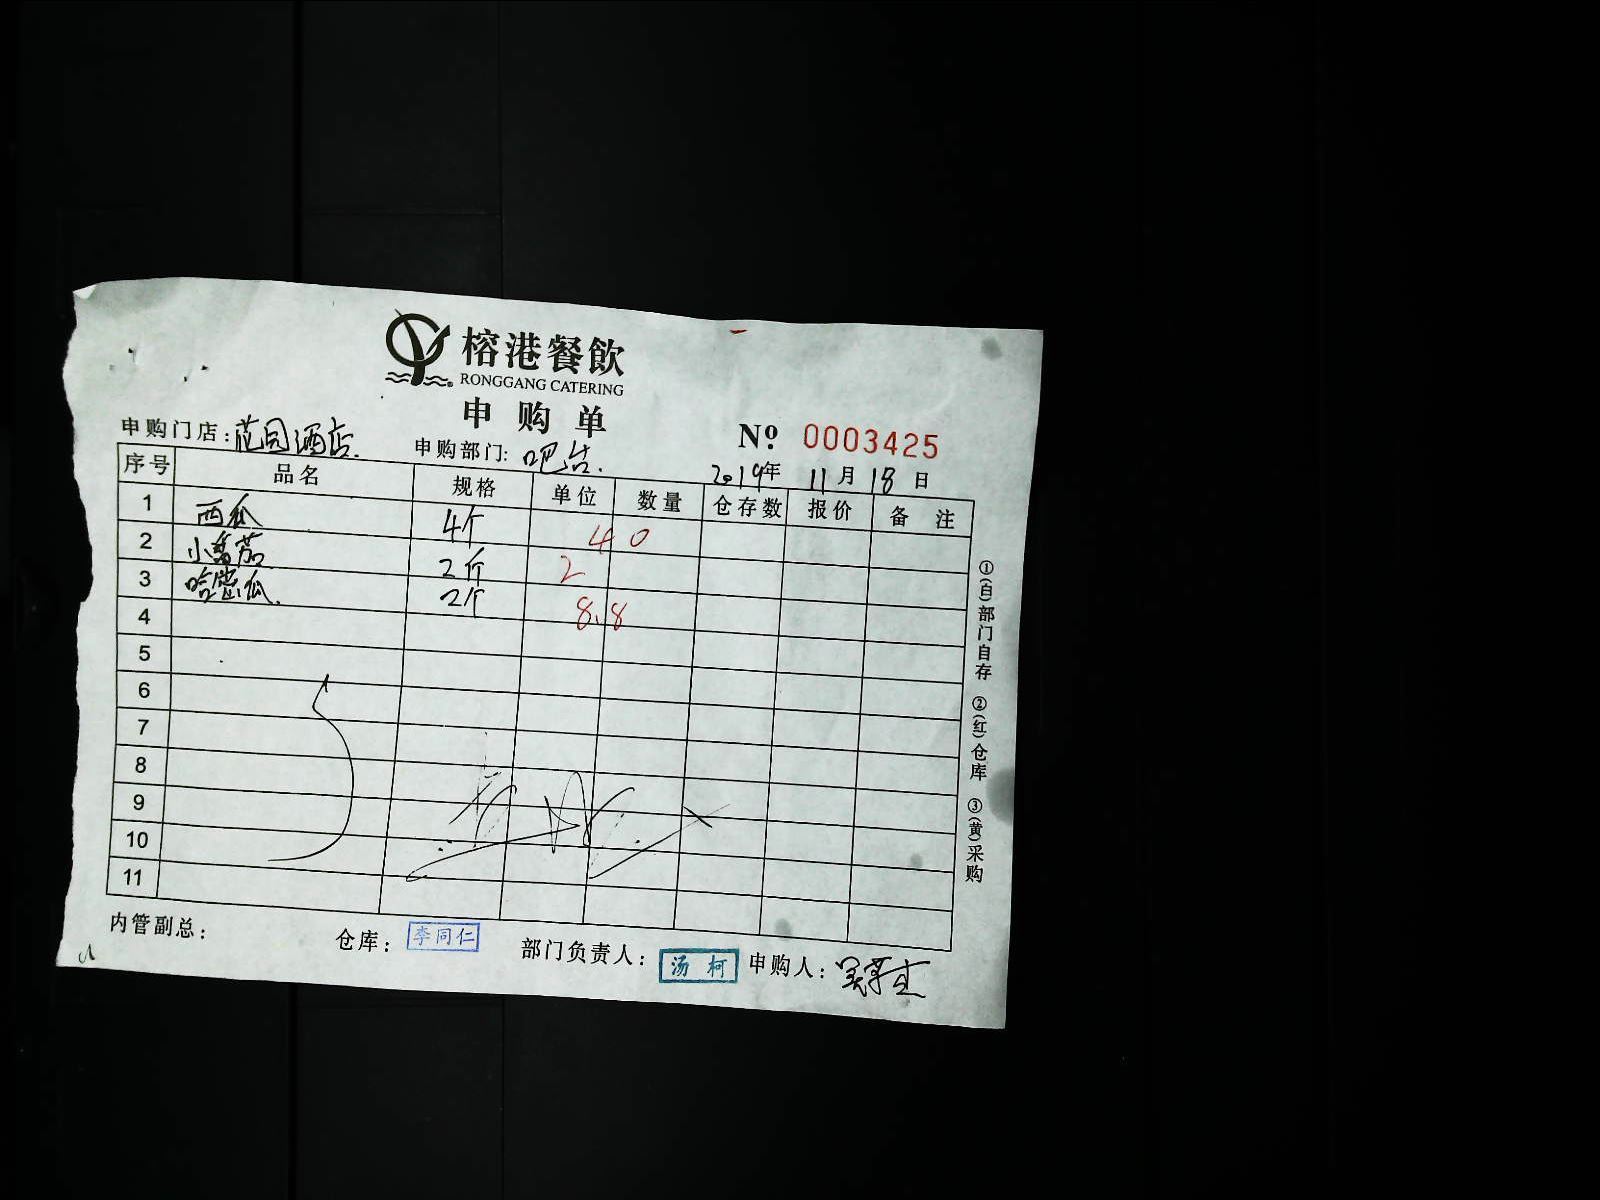 榕港餐飲
RONGGANG CATERING
申购单
申购门店:花园酒店. 申购部门:吧台. Nº 0003425
2019年 11月 18日
序号 品名 规格 单位 数量 仓存数 报价 备注
1 西瓜 4个 40
2 小番茄 2斤 2
3 哈密瓜. 2个 8.8
4
5
6
7
8
9
10
11
①(白)部门自存 ②(红)仓库 ③(黄)采购
内管副总: 仓库: 李同仁 部门负责人: 汤柯 申购人: